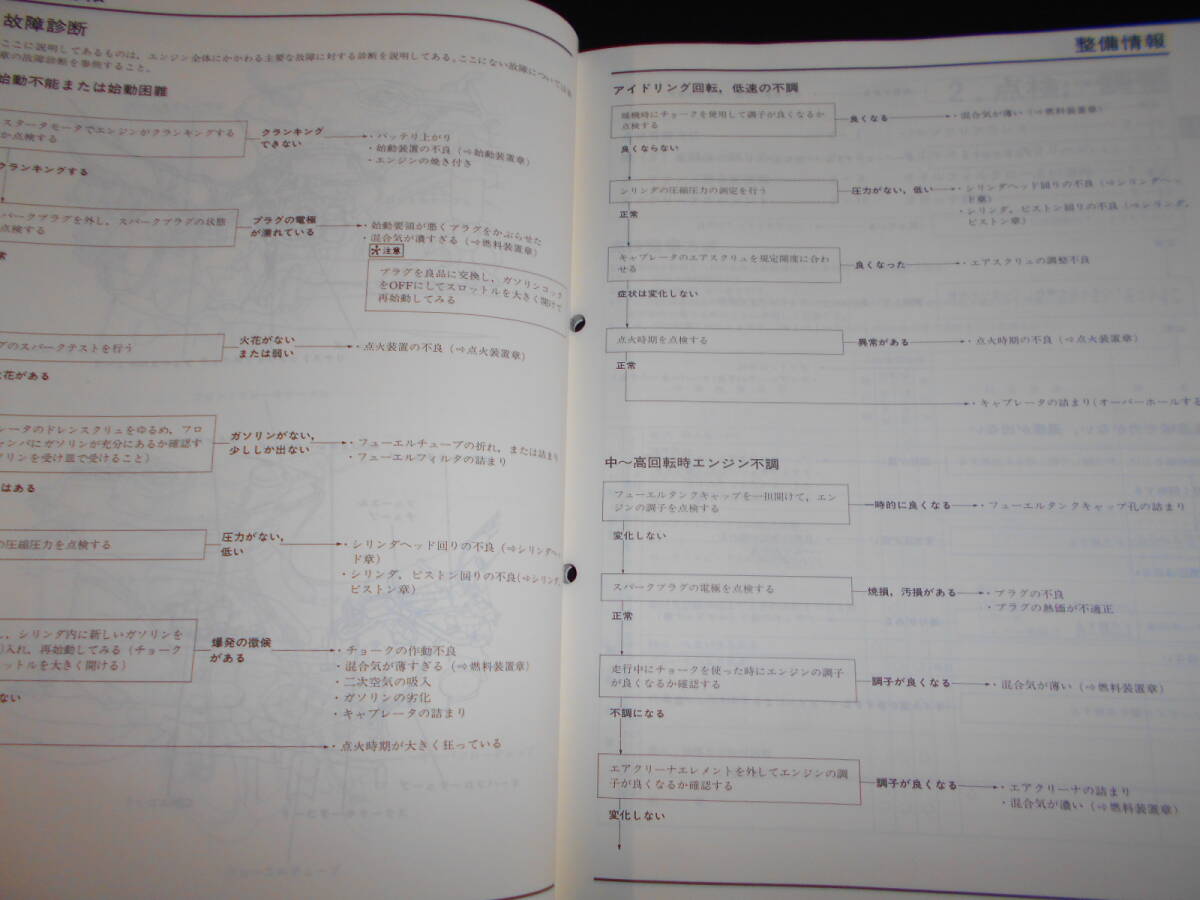 故障診断
ここに説明してあるものは，エンジン全体にかかわる主要な故障に対する診断を説明してある。ここにない故障については
章の故障診断を参照すること。
始動不能または始動困難
スタータモータでエンジンがクランキングする
か点検する
クランキング
できない
・バッテリ上がり
・始動装置の不良（⇨始動装置章）
・エンジンの焼き付き
クランキングする
パークプラグを外し，スパークプラグの状態
点検する
プラグの電極
が濡れている
・始動要領が悪くプラグをかぶらせた
・混合気が濃すぎる（⇨燃料装置章）
注意
プラグを良品に交換し，ガソリンコック
をOFFにしてスロットルを大きく開けて
再始動してみる
常
グのスパークテストを行う
火花がない
または弱い
・点火装置の不良（⇨点火装置章）
花がある
レータのドレンスクリュをゆるめ，フロ
ャンバにガソリンが充分にあるか確認す
ソリンを受け皿で受けること）
ガソリンがない，
少ししか出ない
・フューエルチューブの折れ，または詰まり
・フューエルフィルタの詰まり
はある
の圧縮圧力を点検する
圧力がない，
低い
・シリンダヘッド回りの不良（⇨シリンダヘッ
ド章）
・シリンダ，ピストン回りの不良（⇨シリンダ，
ピストン章）
し，シリンダ内に新しいガソリンを
入れ，再始動してみる（チョーク
ットルを大きく開ける）
爆発の徴候
がある
・チョークの作動不良
・混合気が薄すぎる（⇨燃料装置章）
・二次空気の吸入
・ガソリンの劣化
・キャブレータの詰まり
ない
・点火時期が大きく狂っている
整備情報
アイドリング回転，低速の不調
暖機時にチョークを使用して調子が良くなるか
点検する
良くなる
・混合気が薄い（⇨燃料装置章）
良くならない
シリンダの圧縮圧力の測定を行う
圧力がない，低い
・シリンダヘッド回りの不良（⇨シリンダヘッ
ド章）
・シリンダ，ピストン回りの不良（⇨シリンダ，
ピストン章）
正常
キャブレータのエアスクリュを規定開度に合わ
せる
良くなった
・エアスクリュの調整不良
症状は変化しない
点火時期を点検する
異常がある
・点火時期の不良（⇨点火装置章）
正常
・キャブレータの詰まり（オーバーホールする
中～高回転時エンジン不調
フューエルタンクキャップを一担開けて，エン
ジンの調子を点検する
一時的に良くなる
・フューエルタンクキャップ孔の詰まり
変化しない
スパークプラグの電極を点検する
焼損，汚損がある
・プラグの不良
・プラグの熱価が不適正
正常
走行中にチョークを使った時にエンジンの調子
が良くなるか確認する
調子が良くなる
・混合気が薄い（⇨燃料装置章）
不調になる
エアクリーナエレメントを外してエンジンの調
子が良くなるか確認する
調子が良くなる
・エアクリーナの詰まり
・混合気が濃い（⇨燃料装置章）
変化しない